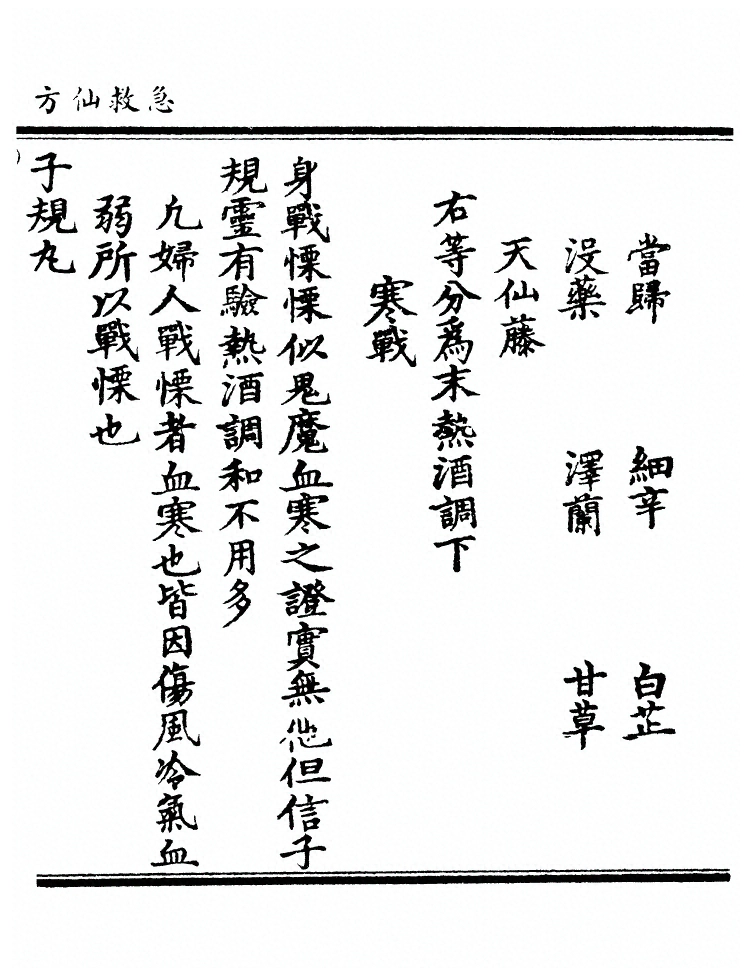 急救仙方
當歸 細辛 白芷
沒藥 澤蘭 甘草
天仙藤
右等分爲末熱酒調下
寒戰
身戰慄慄似鬼魔血寒之證實無他但信子
規靈有驗熱酒調和不用多
凢婦人戰慄者血寒也皆因傷風冷氣血
弱所以戰慄也
子規丸